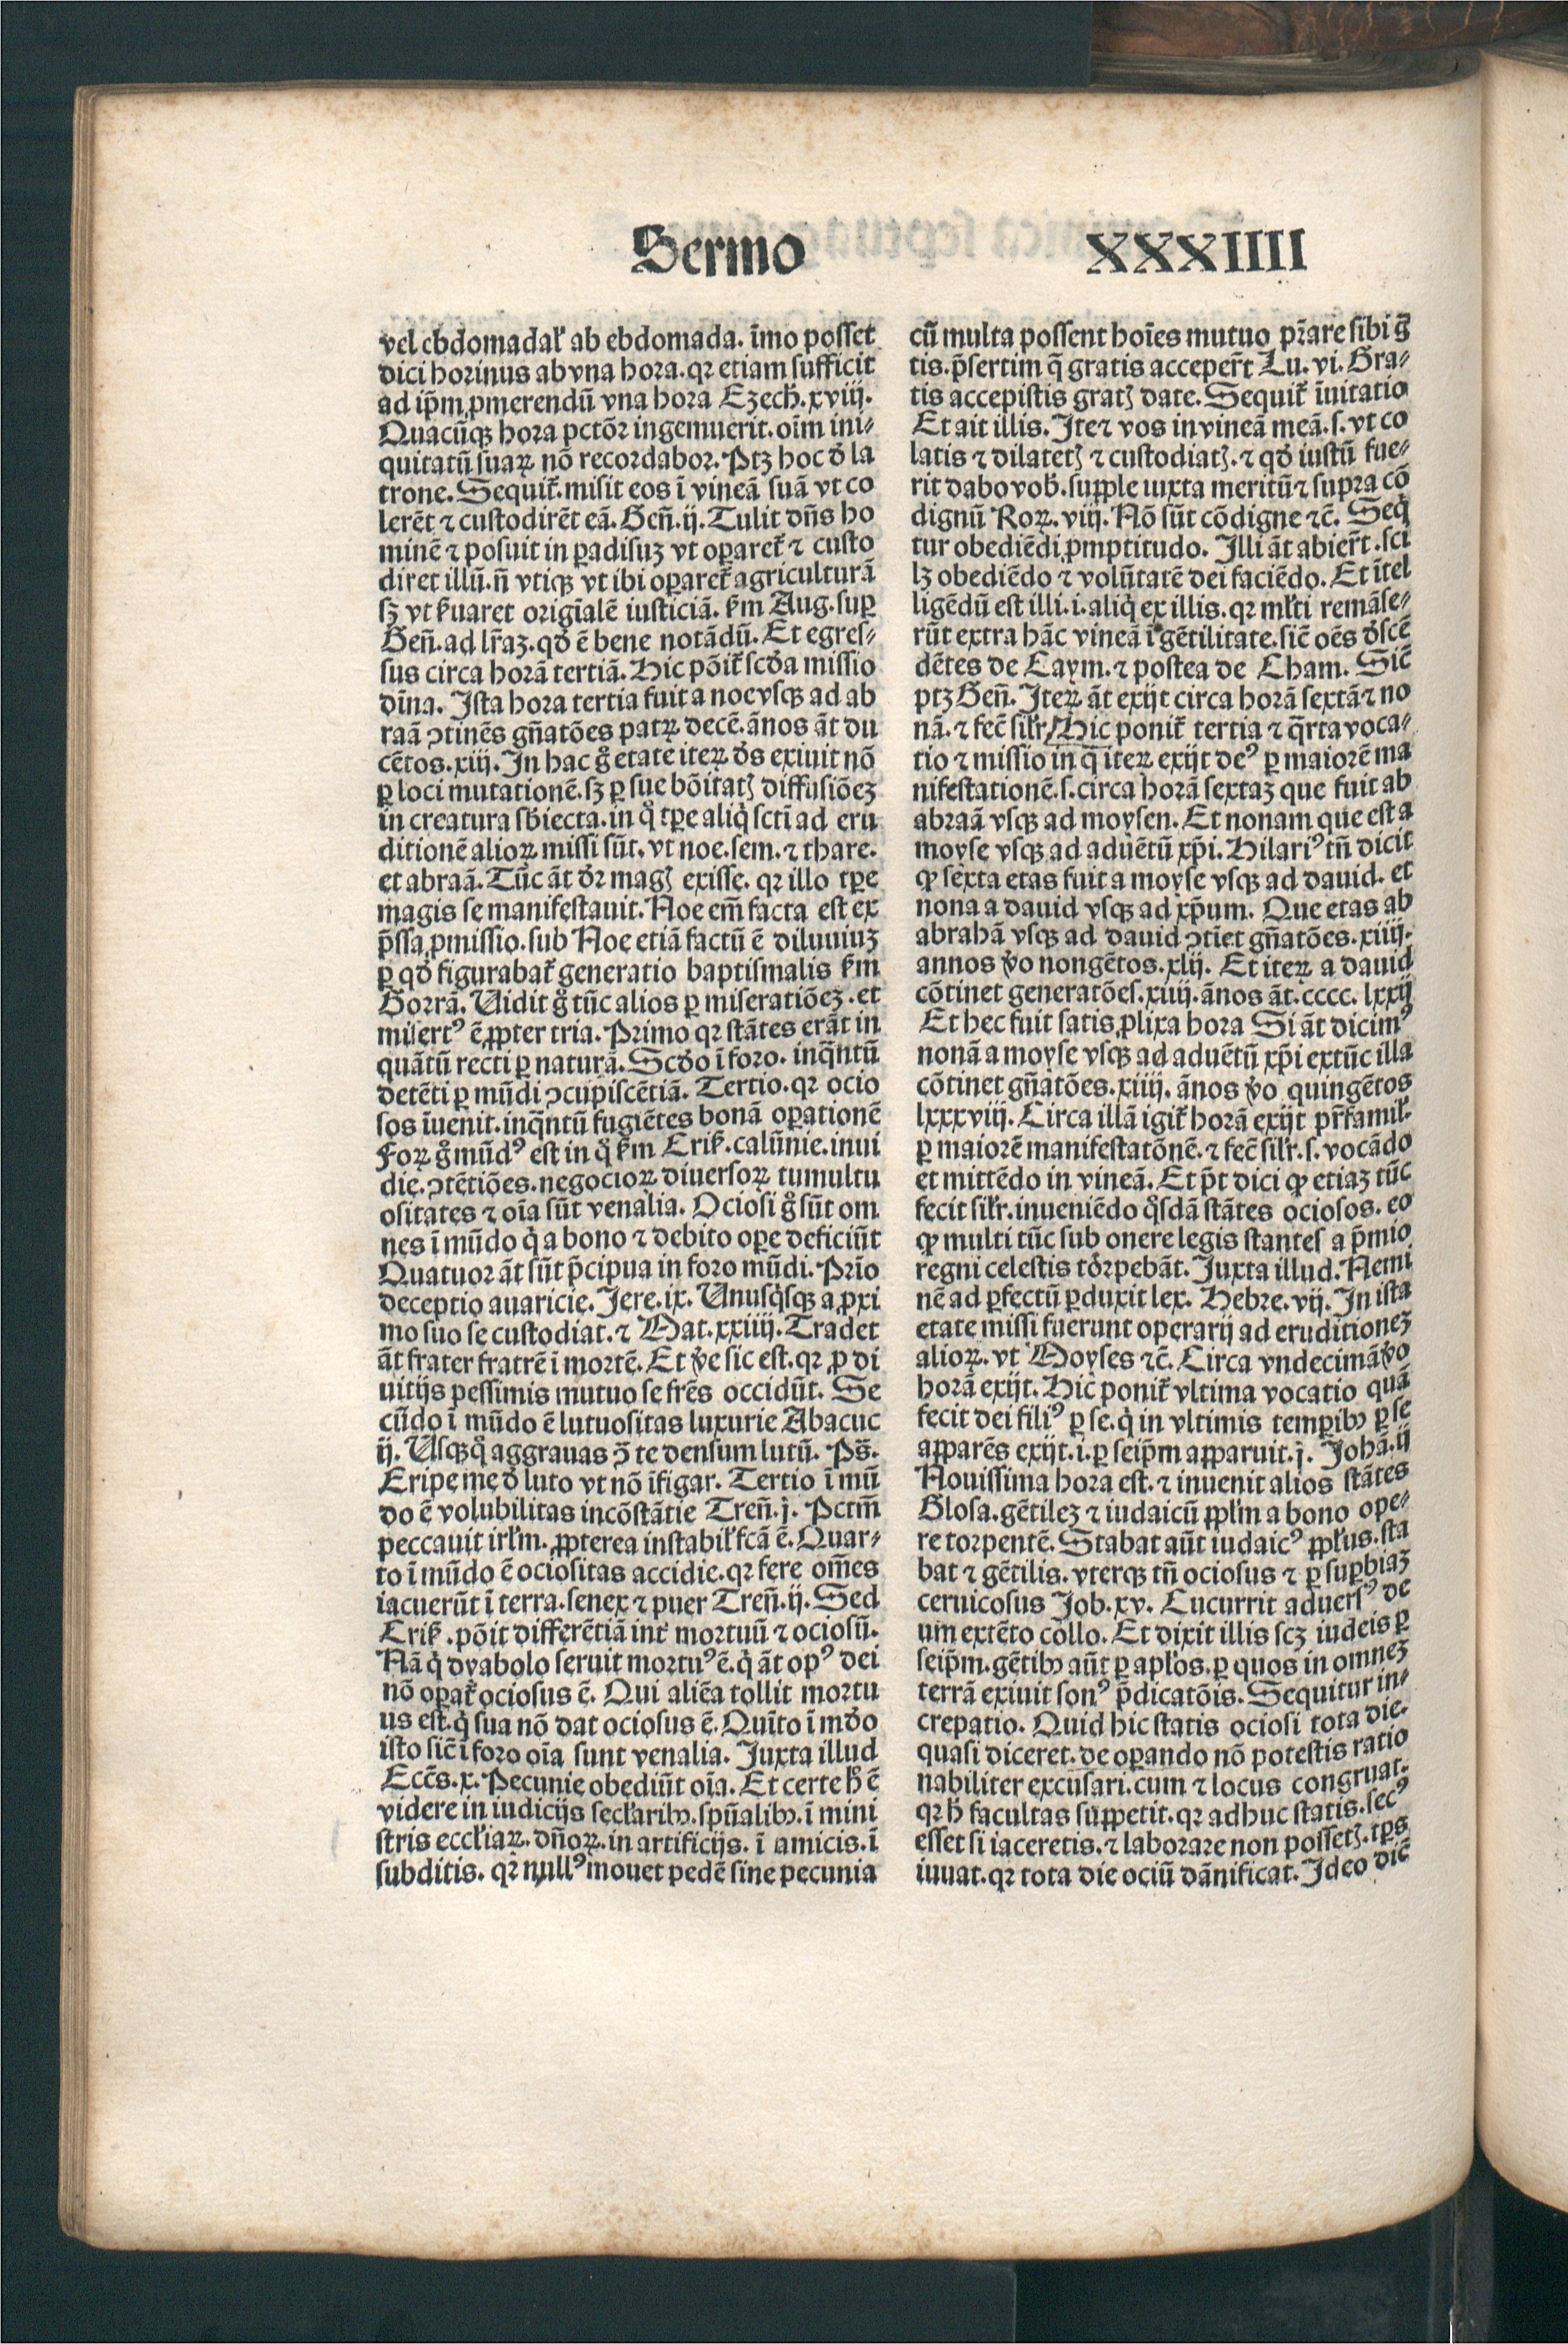 Sermo XXXIIII
vel ebdomadał ab ebdomada. īmo posset
dici horinus ab vna hora. qr etiam sufficit
ad ip̄m ꝓmerendū vna hora Ezech̄. xviij.
Quacūqꝫ hora pctōr ingemuerit. oīm ini⸗
quitatū suaꝝ nō recordabor. Ptꝫ hoc ď la
trone. Sequiť. misit eos ī vineā suā vt co
lerēt ⁊ custodirēt eā. Geñ. ij. Tulit dn̄s ho
minē ⁊ posuit in ꝑadisuꝫ vt oꝑareť ⁊ custo
diret illū. n̄ vtiqꝫ vt ibi oꝑareť agriculturā
sꝫ vt ẜuaret origīalē iusticiā. ẜm Aug. suꝑ
Geñ. ad lr̄aꝫ. qď ē bene notādū. Et egres⸗
sus circa horā tertiā. Hic pōiť scďa missio
dīna. Ista hora tertia fuit a noe vsqꝫ ad ab
raā ↄtinēs gn̄atōes patꝝ decē. ānos āt du
cētos. xiij. In hac gͦ etate iteꝝ ďs exiuit nō
ꝑ loci mutationē. sꝫ ꝑ sue bōitatꝭ diffusiōeꝫ
in creatura sbiecta. in qͦ tꝑe aliqͥ scti ad eru
ditionē alioꝝ missi sūt. vt noe. sem. ⁊ thare.
et abraā. Tūc āt ďr magꝭ exisse. qr illo tꝑe
magis se manifestauit. Noe em̄ facta est ex
p̄ssa ꝓmissio. sub Noe etiā factū ē diluuiuꝫ
ꝑ qď figurabať generatio baptismalis ẜm
Gorrā. Uidit gͦ tūc alios ꝑ miseratiōeꝫ. et
misertꝰ ē ꝓpter tria. Primo qr stātes erāt in
quātū recti ꝑ naturā. Scďo ī foro. inq̄ntū
detēti ꝑ mūdi ↄcupiscētiā. Tertio. qr ocio
sos īuenit. inq̄ntū fugiētes bonā oꝑationē
Foꝝ gͦ mūdꝰ est in qͦ ẜm Criẜ. calūnie. inui
die. ↄtētiōes. negocioꝝ diuersoꝝ tumultu
ositates ⁊ oīa sūt venalia. Ociosi gͦ sūt om
nes ī mūdo qͥ a bono ⁊ debito oꝑe deficiūt
Quatuor āt sūt p̄cipua in foro mūdi. Prīo
deceptio auaricie. Jere. ix. Unusqͥsqꝫ a ꝓxi
mo suo se custodiat. ⁊ Mat. xxiiij. Tradet
āt frater fratrē ī mortē. Et v̓e sic est. qr ꝓ di
uitijs pessimis mutuo se fr̄es occidūt. Se
cūdo ī mūdo ē lutuositas luxurie Abacuc
ij. Usqꝫqͦ aggrauas ↄ̄ te densum lutū. Ps̄.
Eripe me ď luto vt nō īfigar. Tertio ī mū
do ē volubilitas incōstātie Treñ. j. Pctm̄
peccauit irłm. ꝓpterea instabił fcā ē. Quar⸗
to ī mūdo ē ociositas accidie. qr fere om̄es
iacuerūt ī terra. senex ⁊ puer Treñ. ij. Sed
Criẜ. pōit differētiā inť mortuū ⁊ ociosū.
Nā qͥ dyabolo seruit mortuꝰ ē. qͥ āt opꝰ dei
nō oꝑať ociosus ē. Qui aliēa tollit mortu
us est. qͥ sua nō dat ociosus ē. Quīto ī mďo
isto sic̄ ī foro oīa sunt venalia. Juxta illud
Ecc̄s. x. Pecunie obediūt oīa. Et certe hͦ ē
videre in iudicijs secłaribꝰ. spūalibꝰ. ī mini
stris eccłiaꝝ. dn̄oꝝ. in artificijs. ī amicis. ī
subditis. qr nullꝰ mouet pedē sine pecunia
cū multa possent hoīes mutuo p̄rare sibi gͣ
tis. p̄sertim q̄ gratis acceper̄t Lu. vi. Gra⸗
tis accepistis gratꝭ date. Sequiť īuitatio
Et ait illis. Ite ⁊ vos in vineā meā. s. vt co
latis ⁊ dilatetꝭ ⁊ custodiatꝭ. ⁊ qď iustū fue⸗
rit dabo vob̄. supple iuxta meritū ⁊ supra cō
dignū Roꝝ. viij. Nō sūt cōdigne ⁊c̄. Seqͥ
tur obediēdi ꝓmptitudo. Illi āt abier̄t. sci
lꝫ obediēdo ⁊ volūtatē dei faciēdo. Et ītel
ligēdū est illi. i. aliqͥ ex illis. qr młti remāse⸗
rūt extra hāc vineā ī gētilitate. sic̄ oēs ďscē
dētes de Caym. ⁊ postea de Cham. Sic̄
ptꝫ Geñ. Iteꝝ āt exijt circa horā sextā ⁊ no
nā. ⁊ fec̄ siłr/ Hic poniť tertia ⁊ q̄rta voca⸗
tio ⁊ missio in q̄ iteꝝ exijt deꝰ ꝑ maiorē ma
nifestationē. s. circa horā sextaꝫ que fuit ab
abraā vsqꝫ ad moysen. Et nonam que est a
moyse vsqꝫ ad aduētū xp̄i. Hilariꝰ tn̄ dicit
ꝙ sexta etas fuit a moyse vsqꝫ ad dauid. et
nona a dauid vsqꝫ ad xp̄um. Que etas ab
abrahā vsqꝫ ad dauid ↄtīet gn̄atōes. xiiij.
annos v̓o nongētos. xlij. Et iteꝝ a dauid
cōtinet generatōes. xiiij. ānos āt. cccc. lxxij
Et hec fuit satis ꝓlixa hora Si āt dicimꝰ
nonā a moyse vsqꝫ ad aduētū xp̄i extūc illa
cōtinet gn̄atōes. xiiij. ānos v̓o quingētos
lxxxviij. Circa illā igiť horā exijt pr̄famił.
ꝑ maiorē manifestatōnē. ⁊ fec̄ siłr. s. vocādo
et mittēdo in vineā. Et p̄t dici ꝙ etiaꝫ tūc
fecit siłr. inueniēdo qͦsdā stātes ociosos. eo
ꝙ multi tūc sub onere legis stantes a p̄mio
regni celestis torpebāt. Juxta illud. Nemi
nē ad ꝑfectū ꝑduxit lex. Hebre. vij. In ista
etate missi fuerunt operarij ad eruditioneꝫ
alioꝝ. vt Moyses ⁊c̄. Circa vndecimā v̓o
horā exijt. Hic poniť vltima vocatio quā
fecit dei filiꝰ ꝑ se. qͥ in vltimis temꝑibꝰ ꝑ se
apparēs exijt. i. ꝑ seip̄m apparuit. j. Johā. ij
Nouissima hora est. ⁊ inuenit alios stātes
Glosa. gētileꝫ ⁊ iudaicū ppłm a bono ope⸗
re torpentē. Stabat aūt iudaicꝰ ppłus. sta
bat ⁊ gētilis. vterqꝫ tn̄ ociosus ⁊ ꝑ suꝑbiaꝫ
ceruicosus Job. xv. Cucurrit aduersꝰ de
um extēto collo. Et dixit illis scꝫ iudeis ꝑ
seip̄m. gētibꝰ aūt ꝑ apłos. ꝑ quos in omneꝫ
terrā exiuit sonꝰ p̄dicatōis. Sequitur in⸗
crepatio. Quid hic statis ociosi tota die.
quasi diceret. de oꝑando nō potestis ratio
nabiliter excusari. cum ⁊ locus congruat.
qr h̄ facultas suppetit. qr adhuc statis. secꝰ
esset si iaceretis. ⁊ laborare non possetꝭ. tꝑs
iuuat. qr tota die ociū dānificat. Ideo dic̄